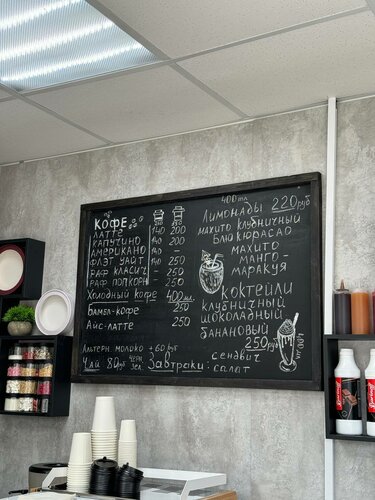 КОФЕ
ЛАТТЕ 140 200
КАПУЧИНО 140 200
АМЕРИКАНО 140 200
ФЛЭТ УАЙТ - 250
РАФ КЛАСИЧ - 250
РАФ ПОПКОРН - 250
Холодный кофе 400мл.
БАМБЛ-КОФЕ 250
АЙС-ЛАТТЕ 250
Альтерн. молоко +60 руб
Чай 80руб черн. зел.
Завтраки: сендвич салат
400 мл
Лимонады 220 руб
МАХИТО КЛУБНИЧНЫЙ
БЛЮ КЮРАСАО
МАХИТО
МАНГО-
МАРАКУЯ
КОКТЕЙЛИ
КЛУБНИЧНЫЙ
ШОКОЛАДНЫЙ
БАНАНОВЫЙ
250 руб
400 мл